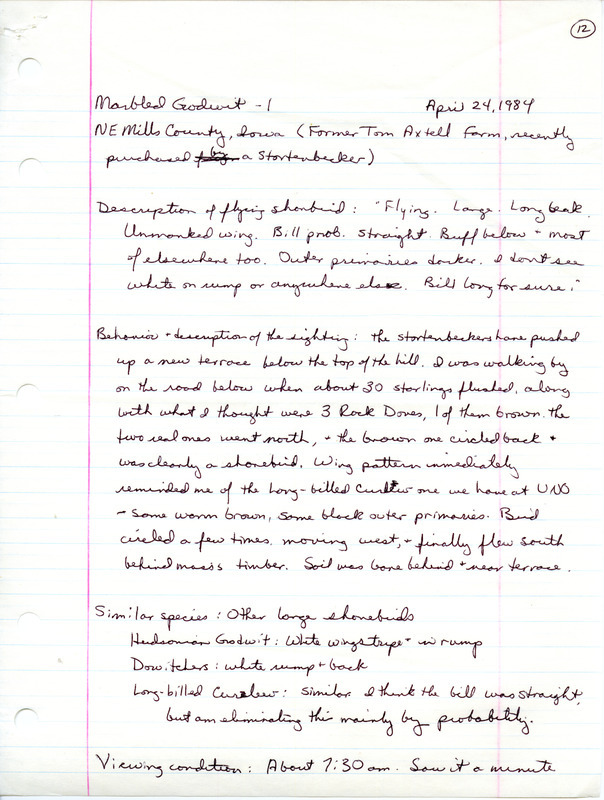 12
Marbled Godwit - 1 April 24, 1984
NE Mills County, Iowa (Former Tom Axtell Farm, recently
purchased by a Stortenbecker)
Description of flying shorebird: "Flying. Large. Long beak.
Unmarked wing. Bill prob. straight. Buff below + most
of elsewhere too. Outer primaries darker. I don't see
white on rump or anywhere else. Bill long for sure."
Behavior + description of the sighting: The Stortenbeckers have pushed
up a new terrace below the top of the hill. I was walking by
on the road below when about 30 starlings flushed, along
with what I thought were 3 Rock Doves, 1 of them brown. The
two real ones went north, + the brown one circled back +
was clearly a shorebird. Wing pattern immediately
reminded me of the Long-billed Curlew one we have at UNO
- same warm brown, same black outer primaries. Bird
circled a few times, moving west, + finally flew south
behind timber. Soil was bare behind + near terrace.
Similar species: Other large shorebirds
Hudsonian Godwit: White wingstripe + on rump
Dowitchers: white rump + back
Long-billed Curlew: Similar. I think the bill was straight,
but am eliminating this mainly by probability.
Viewing condition: About 7:30 am. Saw it a minute